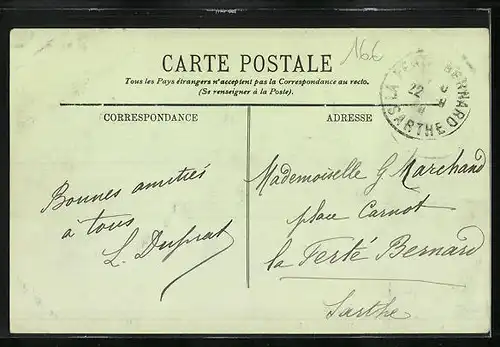 166
CARTE POSTALE
Tous les Pays étrangers n'acceptent pas la Correspondance au recto.
(Se renseigner à la Poste).
LA FERTE BERNARD
22
SARTHE
CORRESPONDANCE
ADRESSE
Bonnes amitiés
à tous
L. Duprat
Mademoiselle G Marchand
place Carnot
la Ferté Bernard
Sarthe